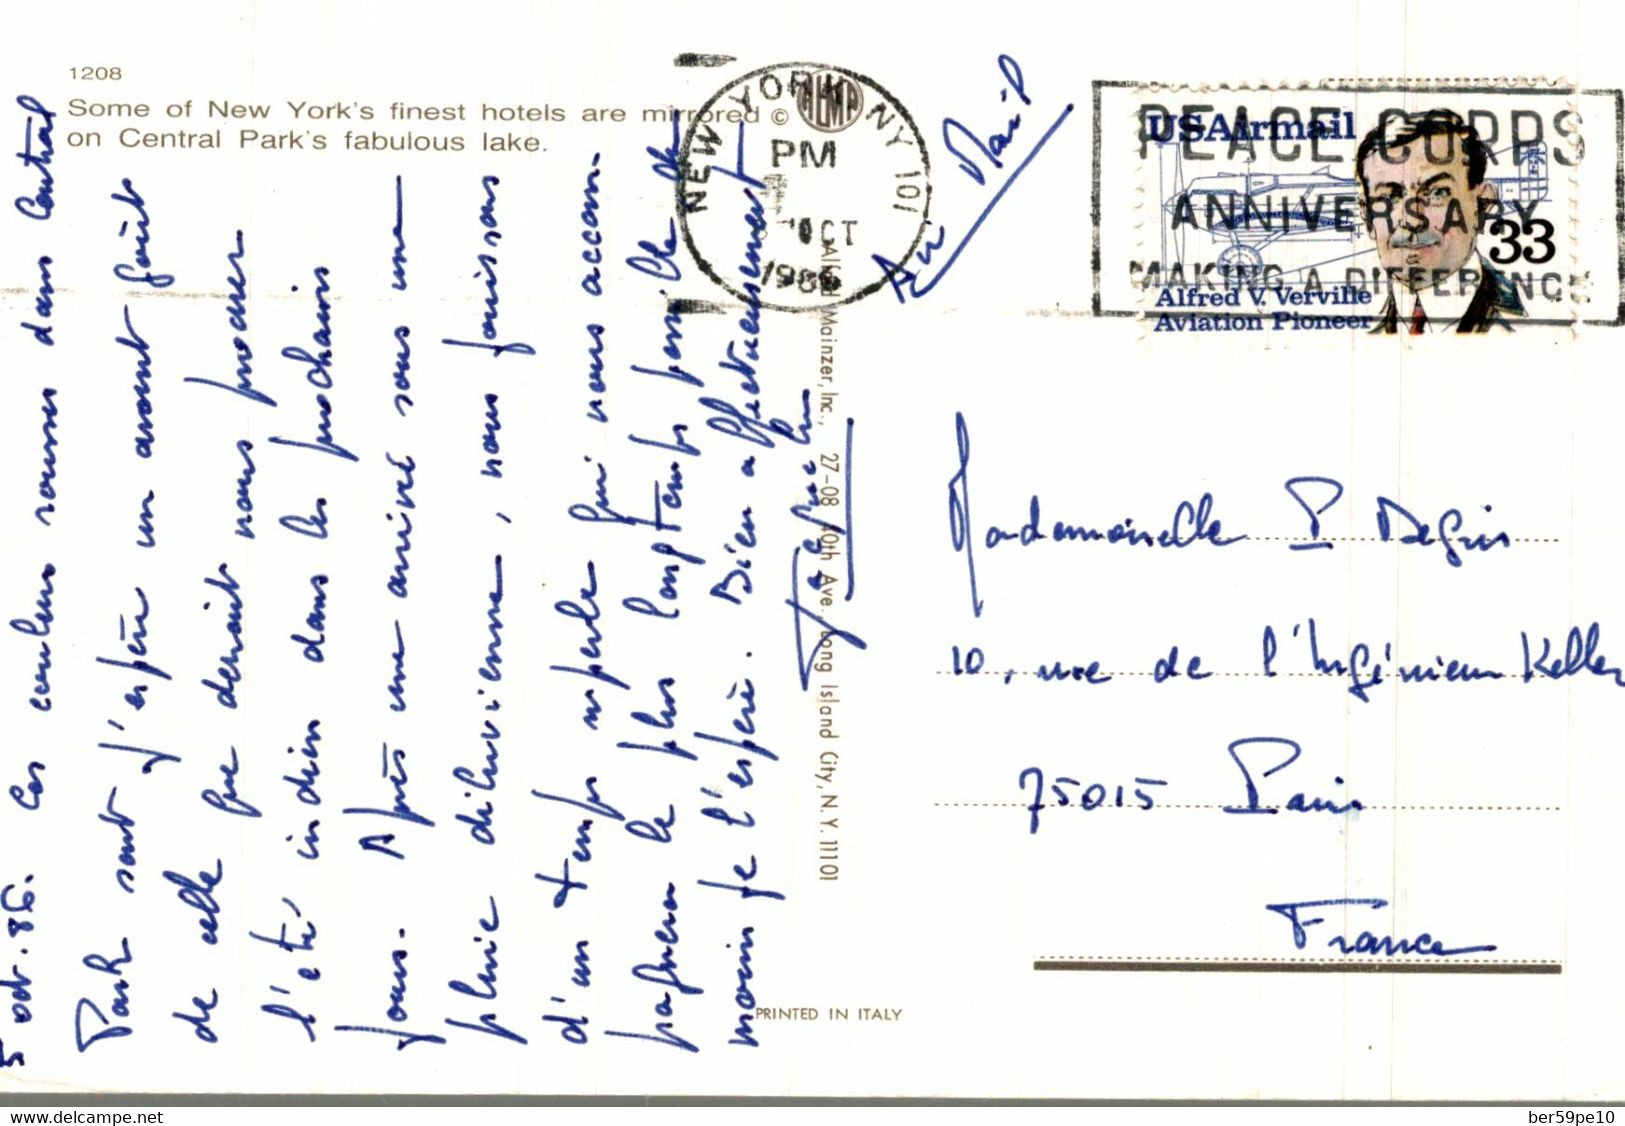 1208
Some of New York's finest hotels are mirrored ©
on Central Park's fabulous lake.
NEW YORK NY 101
PM
OCT
1986
Air Mail
USAirmail
33
Alfred V. Verville
Aviation Pioneer
PEACE CORPS
ANNIVERSARY
MAKING A DIFFERENCE
5 oct. 86. Ces couleurs rousses dans Central
Park sont j'espère un avant goût
de celle que devrait nous procurer
l'été indien dans les prochains
jours. Après une arrivée sous une
pluie diluvienne, nous jouissons
d'un temps superbe qui nous accom-
pagnera le plus longtemps possible du
moins je l'espère. Bien affectueusement
Mainzer, Inc., 27-08 40th Ave. Long Island City, N.Y. 11101
Mademoiselle P
10, rue de l'Ingénieur Keller
75015 Paris
France
PRINTED IN ITALY
delcampe.net
ber59pe10